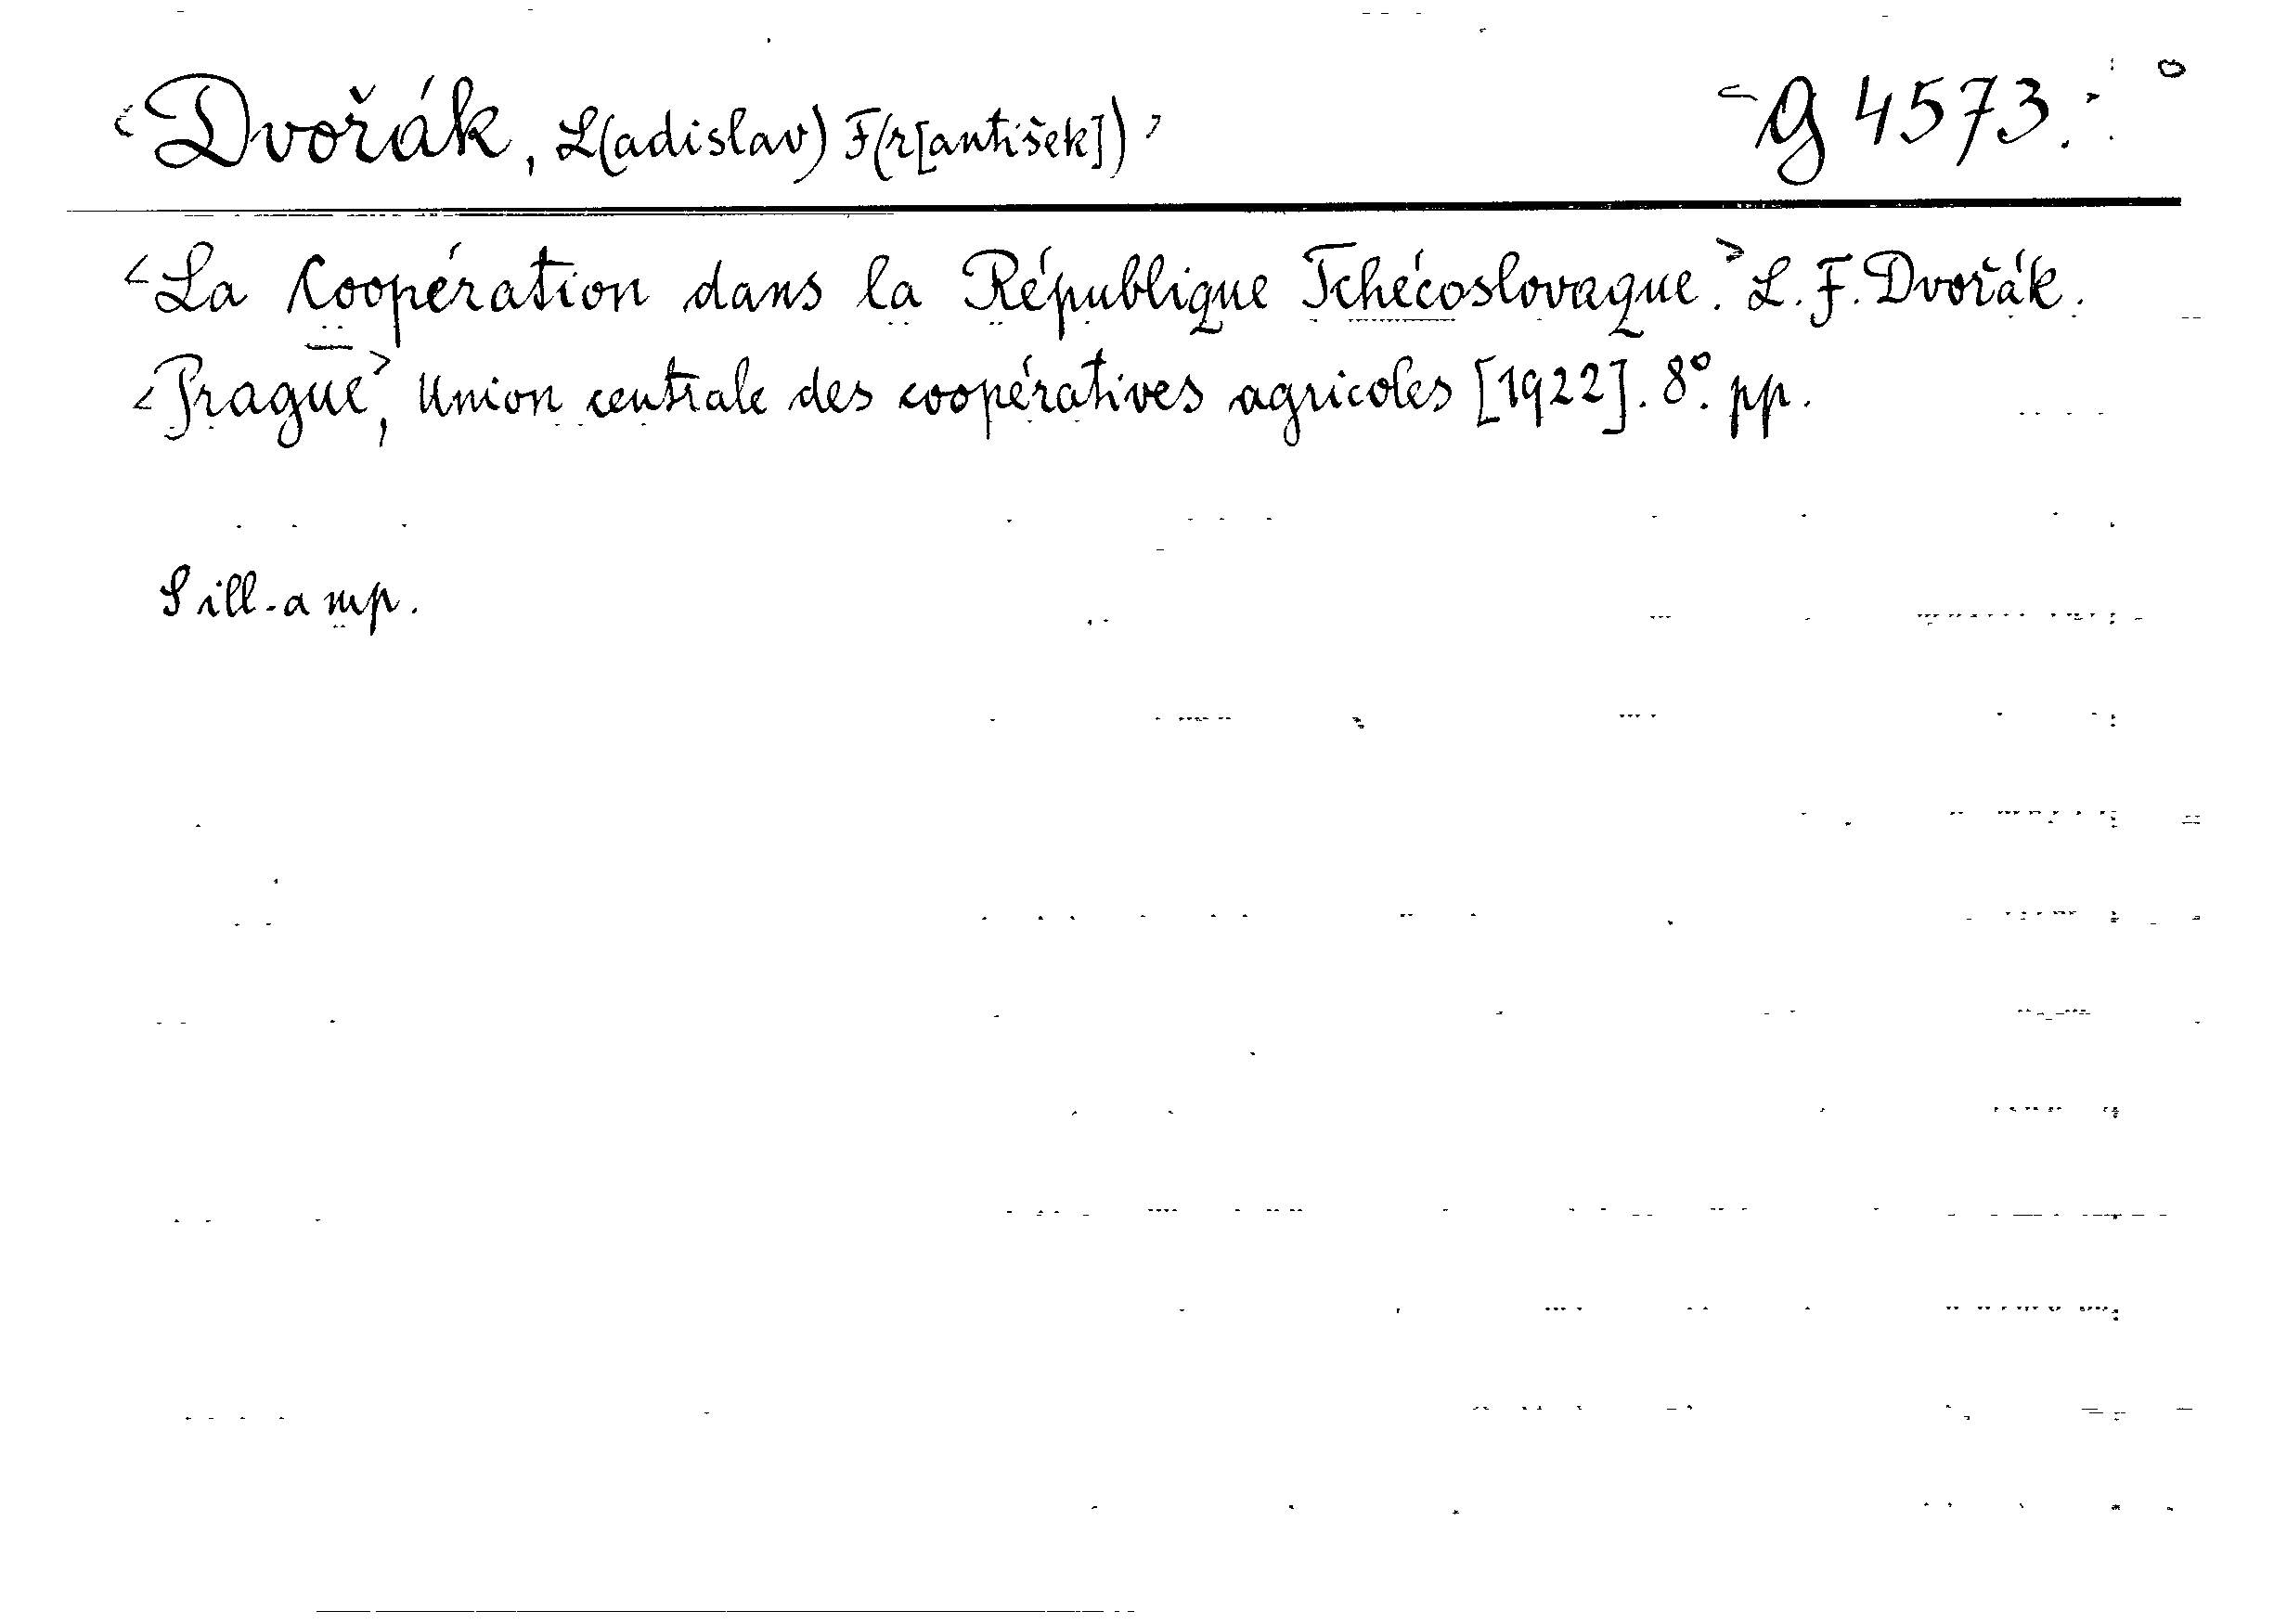 <Dvořák, L(adislav) F(r[antišek])> <G 4573.>
<La Coopération dans la République Tchécoslovaque.> L. F. Dvořák.
<Prague>, Union centrale des coopératives agricoles [1922]. 8°. pp.
S ill. a mp.